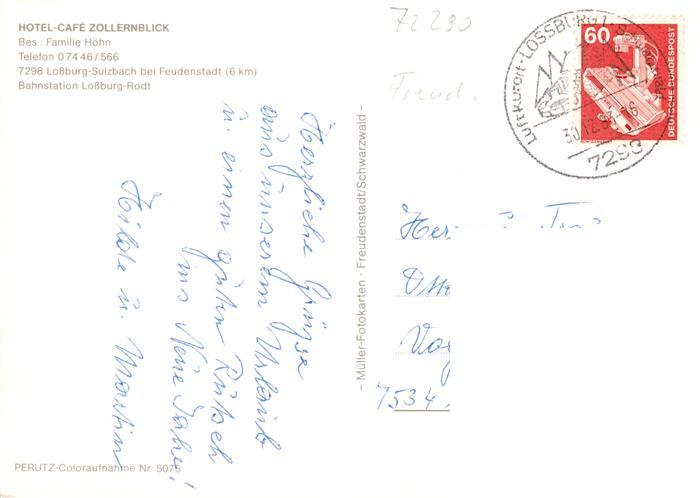 HOTEL-CAFÉ ZOLLERNBLICK
Bes.: Familie Höhn
Telefon 0 74 46 / 566
7298 Loßburg-Sulzbach bei Feudenstadt (6 km)
Bahnstation Loßburg-Rodt
Herzliche Grüsse
aus unserem Urlaub
u. einen guten Rutsch
ins Neue Jahr!
Hilde u. Martin
PERUTZ-Coloraufnahme Nr. 5075
– Müller-Fotokarten · Freudenstadt/Schwarzwald –
72290
Freud.
Luftkurort · LOSSBURG
30.12.
7293
60
DEUTSCHE BUNDESPOST
7534